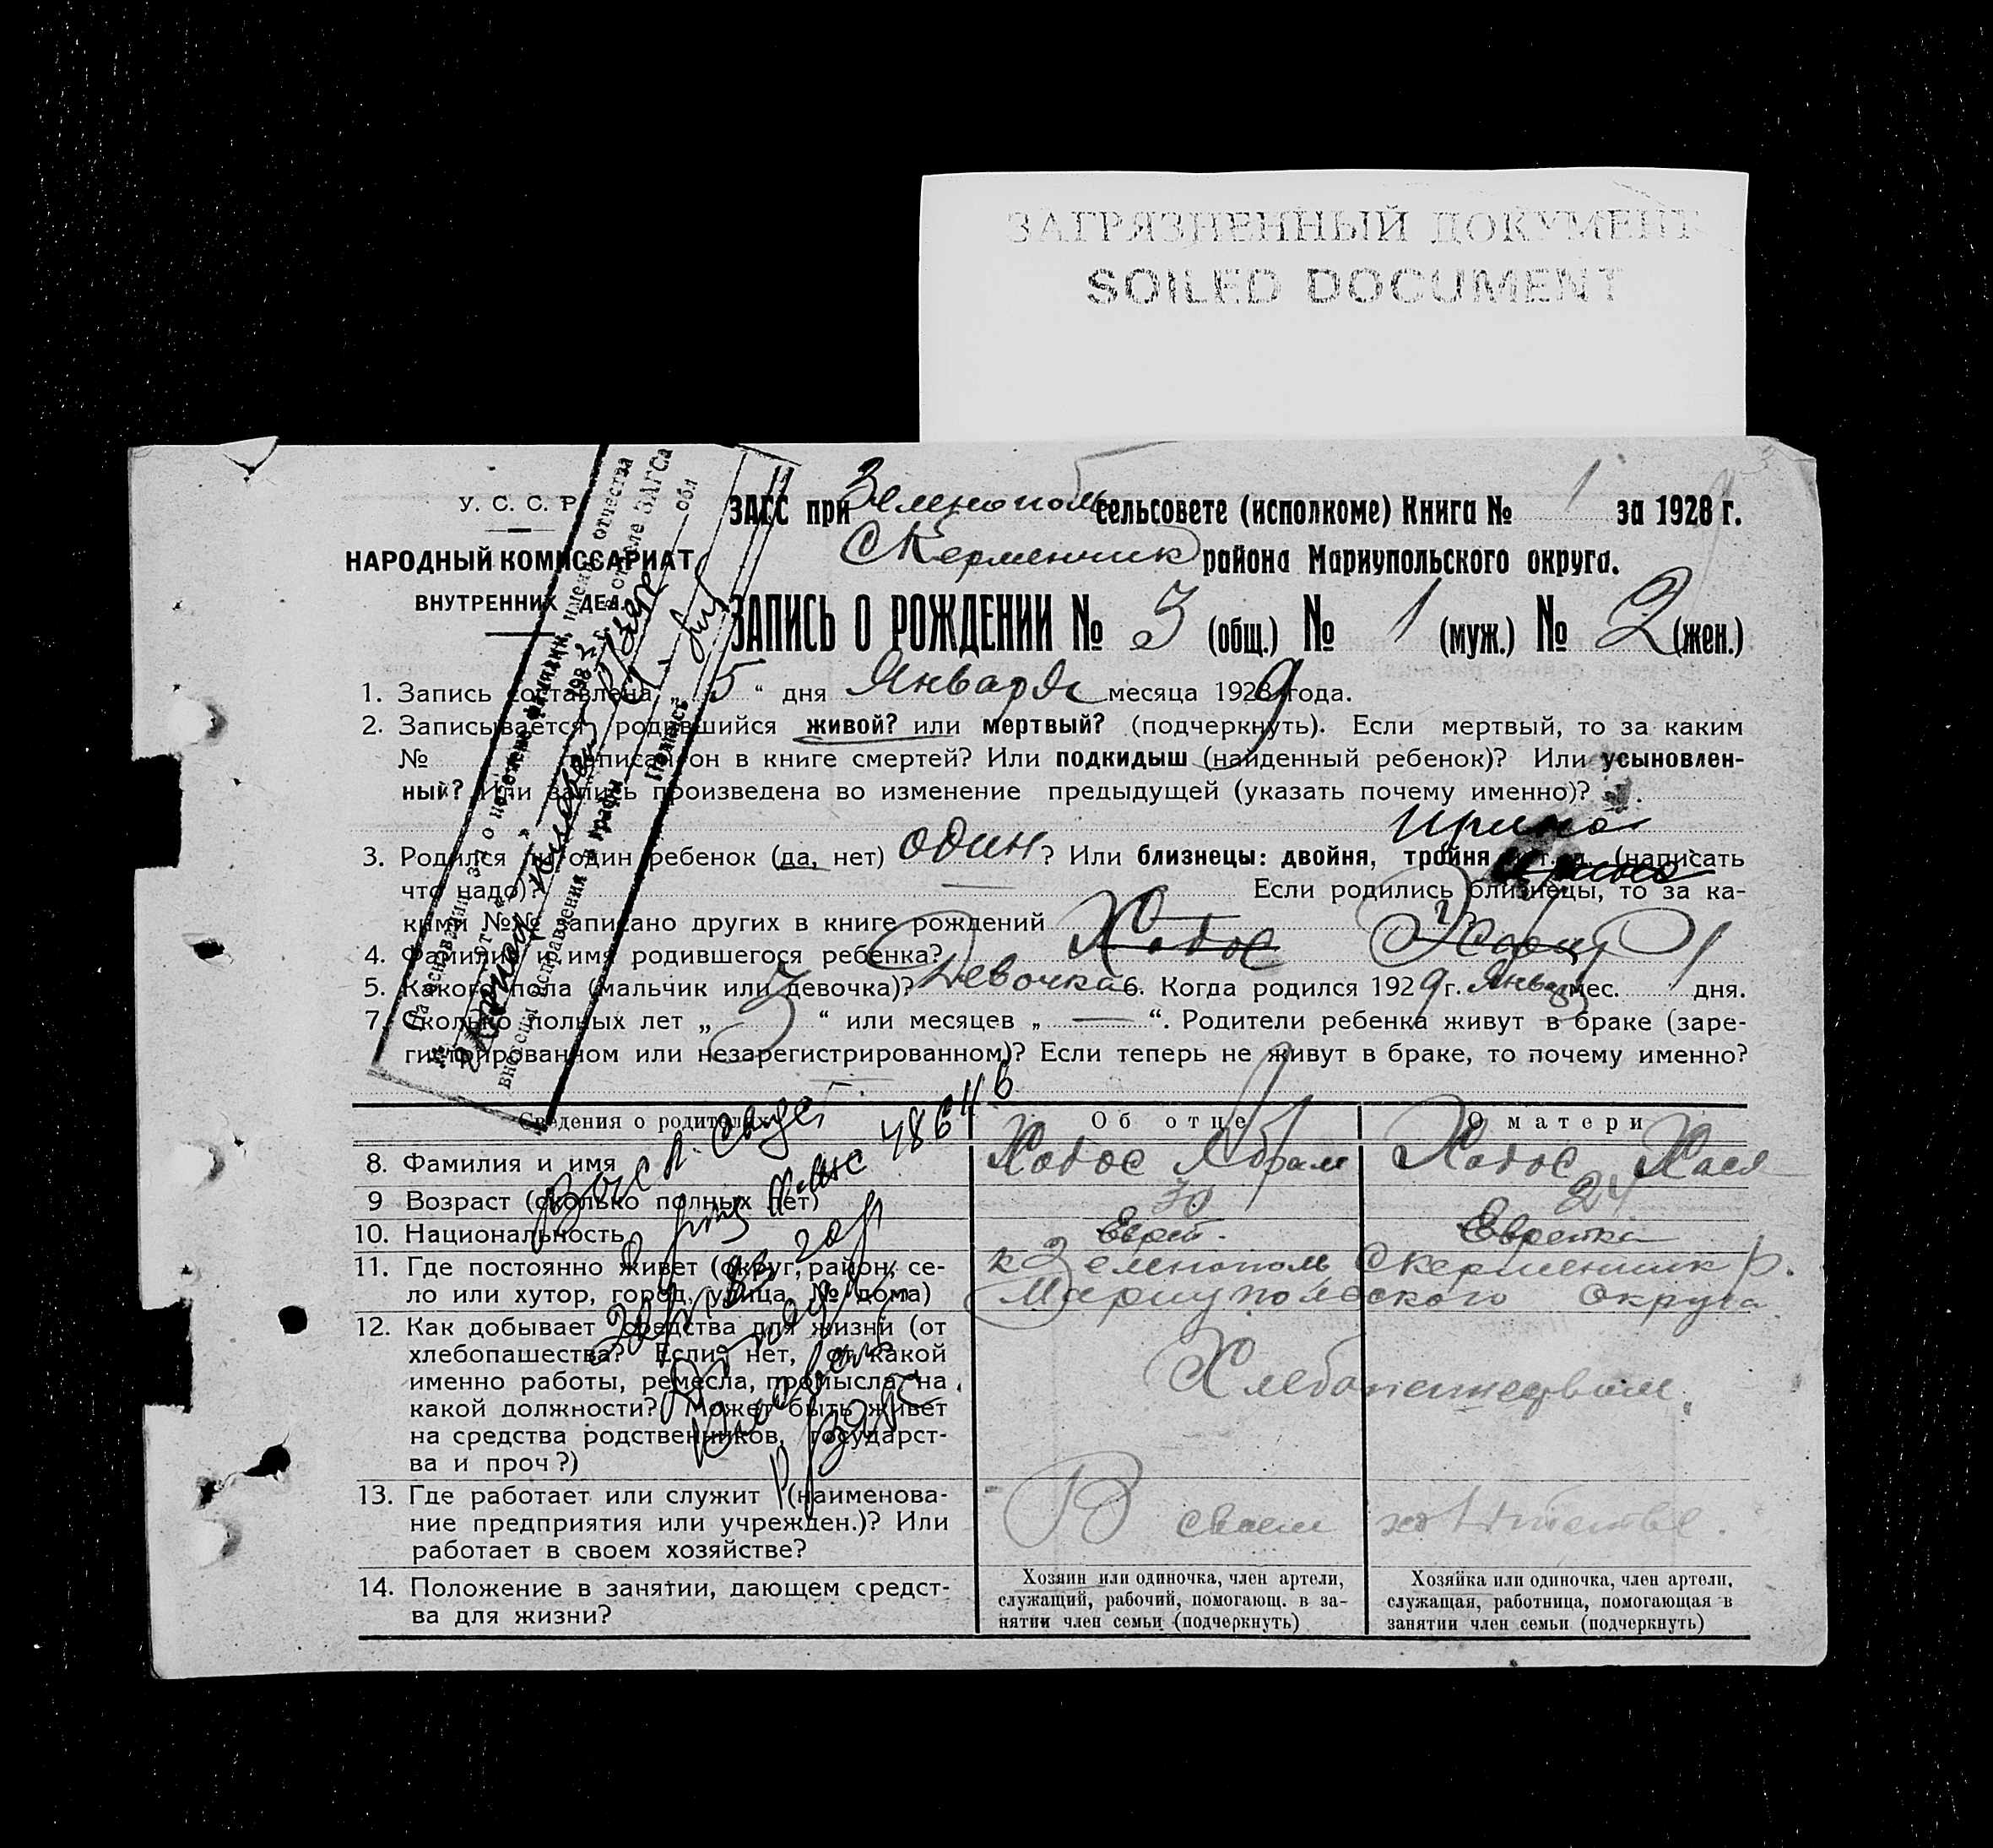 ЗАГРЯЗНЕННЫЙ ДОКУМЕНТ
SOILED DOCUMENT
У. С. С. Р.
НАРОДНЫЙ КОМИССАРИАТ
ВНУТРЕННИХ ДЕЛ.
ЗАГС при Зеленополь сельсовете (исполкоме) Книга № 1 за 1928 г.
С Керменчик района Мариупольского округа.
ЗАПИСЬ О РОЖДЕНИИ № 3 (общ.) № 1 (муж.) № 2 (жен.)
1. Запись составлена 5 “ дня Января месяца 1929 года.
2. Записывается родившийся живой? или мертвый? (подчеркнуть). Если мертвый, то за каким
№ записан он в книге смертей? Или подкидыш (найденный ребенок)? Или усыновлен-
ный? Или запись произведена во изменение предыдущей (указать почему именно)?
Ирина
3. Родился ли один ребенок (да, нет) один? Или близнецы: двойня, тройня и т. д. (написать
что надо) Если родились близнецы, то за ка-
кими №№ записано других в книге рождений
4. Фамилия и имя родившегося ребенка? Ходос
5. Какого пола (мальчик или девочка)? Девочка 6. Когда родился 1929 г. Январ мес. 1 дня.
7. Сколько полных лет „ 3 “ или месяцев „ — “. Родители ребенка живут в браке (заре-
гистрированном или незарегистрированном)? Если теперь не живут в браке, то почему именно?
Сведения о родителях
Об отце
О матери
8. Фамилия и имя
Ходос Абрам
Ходос Хася
9 Возраст (сколько полных лет)
30
24
10. Национальность
Еврей.
Еврейка
11. Где постоянно живет (округ, район, се-
ло или хутор, город, улица, № дома)
к Зеленополь С Керменчик р.
Мариупольского Округа
12. Как добывает средства для жизни (от
хлебопашества? Если нет, от какой
именно работы, ремесла, промысла, на
какой должности? Может быть живет
на средства родственников, государст-
ва и проч?)
Хлебопашеством.
13. Где работает или служит (наименова-
ние предприятия или учрежден.)? Или
работает в своем хозяйстве?
В своем хозяйстве.
14. Положение в занятии, дающем средст-
ва для жизни?
Хозяин или одиночка, член артели,
служащий, рабочий, помогающ. в за-
нятии член семьи (подчеркнуть)
Хозяйка или одиночка, член артели,
служащая, работница, помогающая в
занятии член семьи (подчеркнуть)